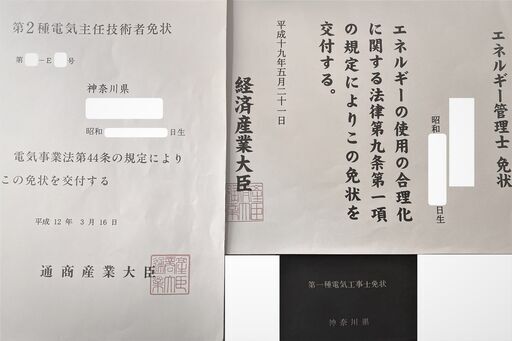 第2種電気主任技術者免状
第 -E 号
神奈川県
昭和 日生
電気事業法第44条の規定により
この免状を交付する
平成12年 3月16日
通商産業大臣
エネルギー管理士 免状
昭和 日生
エネルギーの使用の合理化
に関する法律第九条第一項
の規定によりこの免状を
交付する。
平成十九年五月二十一日
経済産業大臣
第一種電気工事士免状
神奈川県